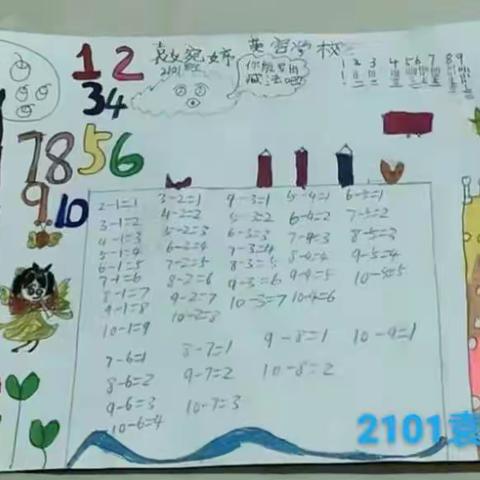 1 2
3 4
7 8 5 6
9. 10
袁宛婷 英官学校
2101班
你能写出
减法吧
1 2 3 4 5 6 7 8 9
2-1=1 3-2=1 4-3=1 5-4=1 6-5=1
3-1=2 4-2=2 5-3=2 6-4=2 7-5=2
4-1=3 5-2=3 6-3=3 7-4=3 8-5=3
5-1=4 6-2=4 7-3=4 8-4=4 9-5=4
6-1=5 7-2=5 8-3=5 9-4=5 10-5=5
7-1=6 8-2=6 9-3=6 10-4=6
8-1=7 9-2=7 10-3=7
9-1=8 10-2=8
10-1=9
7-6=1 8-7=1 9-8=1 10-9=1
8-6=2 9-7=2 10-8=2
9-6=3 10-7=3
10-6=4
2101袁